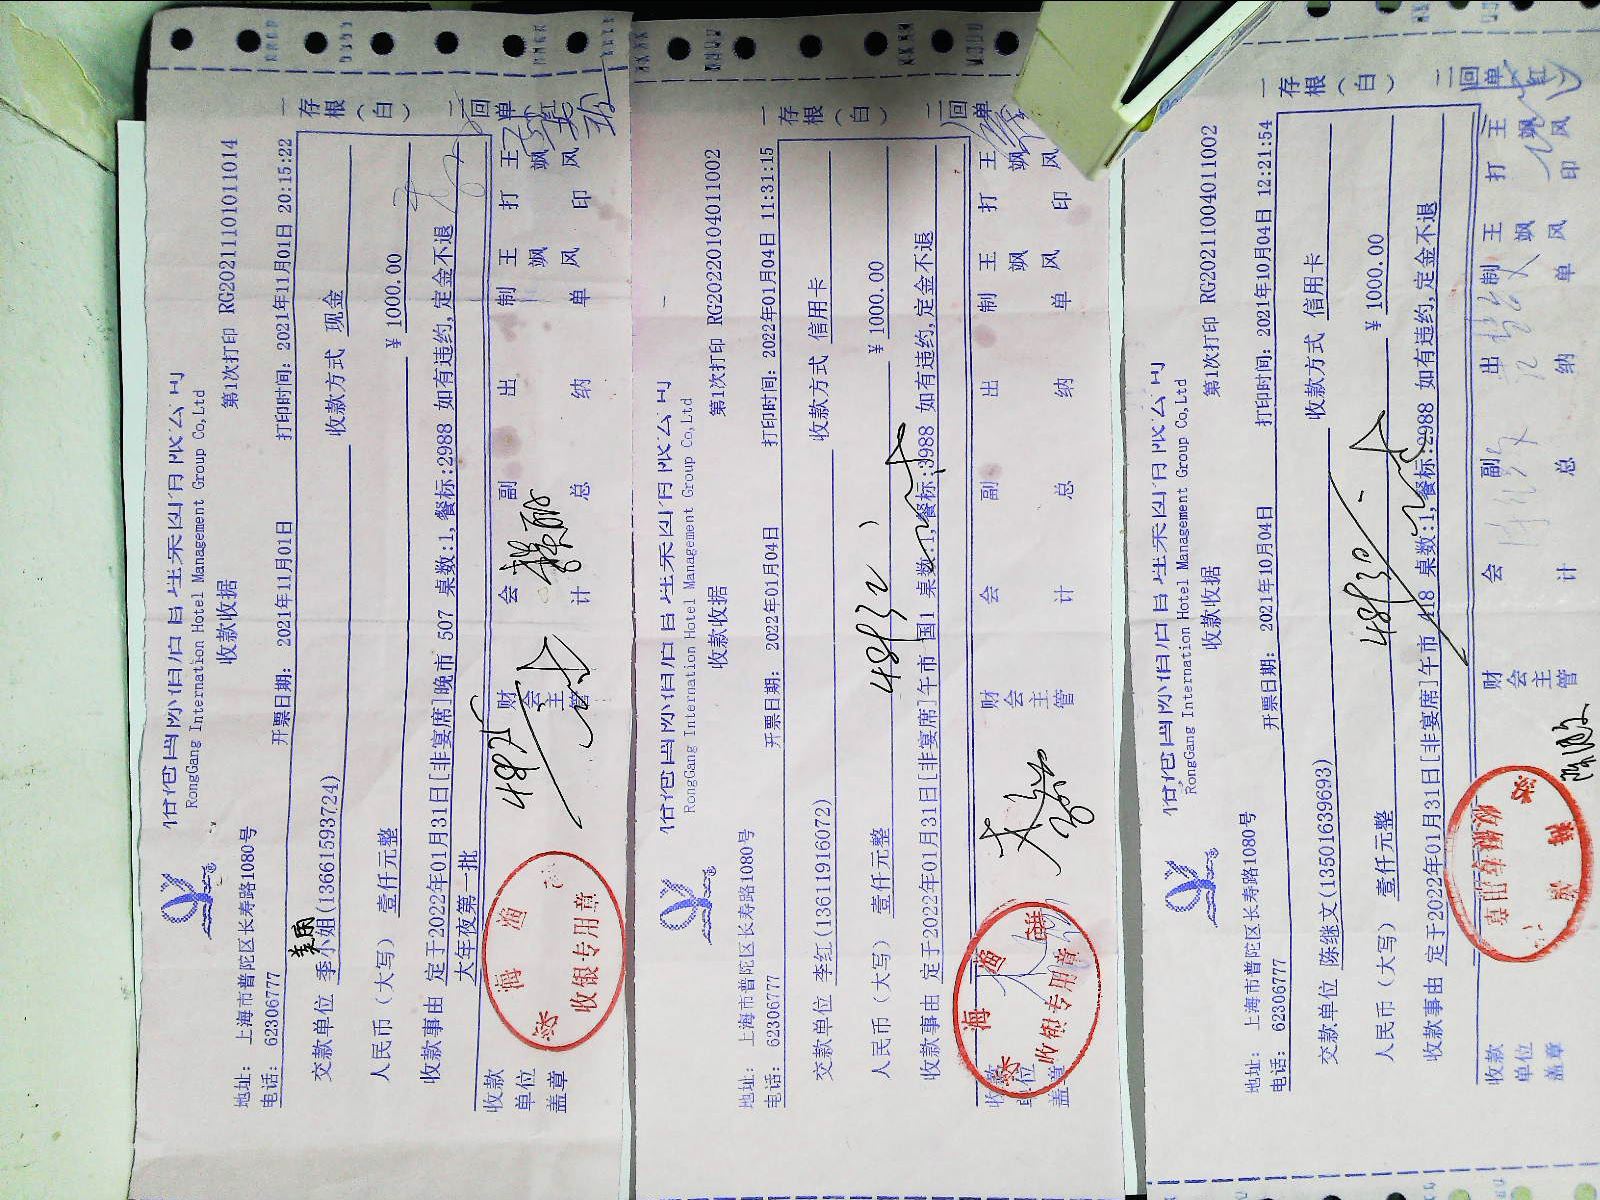 RongGang Internation Hotel Management Group Co,Ltd
收款收据
第1次打印 RG20211101011014
地址: 上海市普陀区长寿路1080号
电话: 62306777
开票日期: 2021年11月01日
打印时间: 2021年11月01日 20:15:22
美团
交款单位 季小姐(13661593724)
收款方式 现金
人民币(大写) 壹仟元整
¥ 1000.00
收款事由 定于2022年01月31日[非宴席]晚市 507 桌数:1,餐标:2988 如有违约,定金不退
大年夜第一批
一存根(白) 二回单
收款单位盖章
财会主管
会计
副总
出纳
制单 王飒风
打印 王飒风
收银专用章
RongGang Internation Hotel Management Group Co,Ltd
收款收据
第1次打印 RG20220104011002
地址: 上海市普陀区长寿路1080号
电话: 62306777
开票日期: 2022年01月04日
打印时间: 2022年01月04日 11:31:15
交款单位 李红(13611916072)
收款方式 信用卡
人民币(大写) 壹仟元整
¥ 1000.00
4832
收款事由 定于2022年01月31日[非宴席]午市 国1 桌数:1,餐标:3988 如有违约,定金不退
一存根(白) 二回单
收款单位盖章
财会主管
会计
副总
出纳
制单 王飒风
打印 王飒风
收银专用章
RongGang Internation Hotel Management Group Co,Ltd
收款收据
第1次打印 RG20211004011002
地址: 上海市普陀区长寿路1080号
电话: 62306777
开票日期: 2021年10月04日
打印时间: 2021年10月04日 12:21:54
交款单位 陈继文(13501639693)
收款方式 信用卡
人民币(大写) 壹仟元整
¥ 1000.00
4830
收款事由 定于2022年01月31日[非宴席]午市 418 桌数:1,餐标:2988 如有违约,定金不退
一存根(白) 二回单
收款单位盖章
财会主管
会计
副总
出纳
制单 王飒风
打印 王飒风
收银专用章